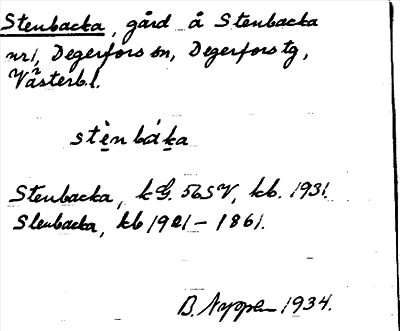 Stenbacka, gård å Stenbacka
nr 1, Degerfors sn, Degerfors tg,
Västerb. l.
stènbáka
Stenbacka, kG. 56SV, kb. 1931.
Stenbacka, kb 1921–1861.
B. 1934.